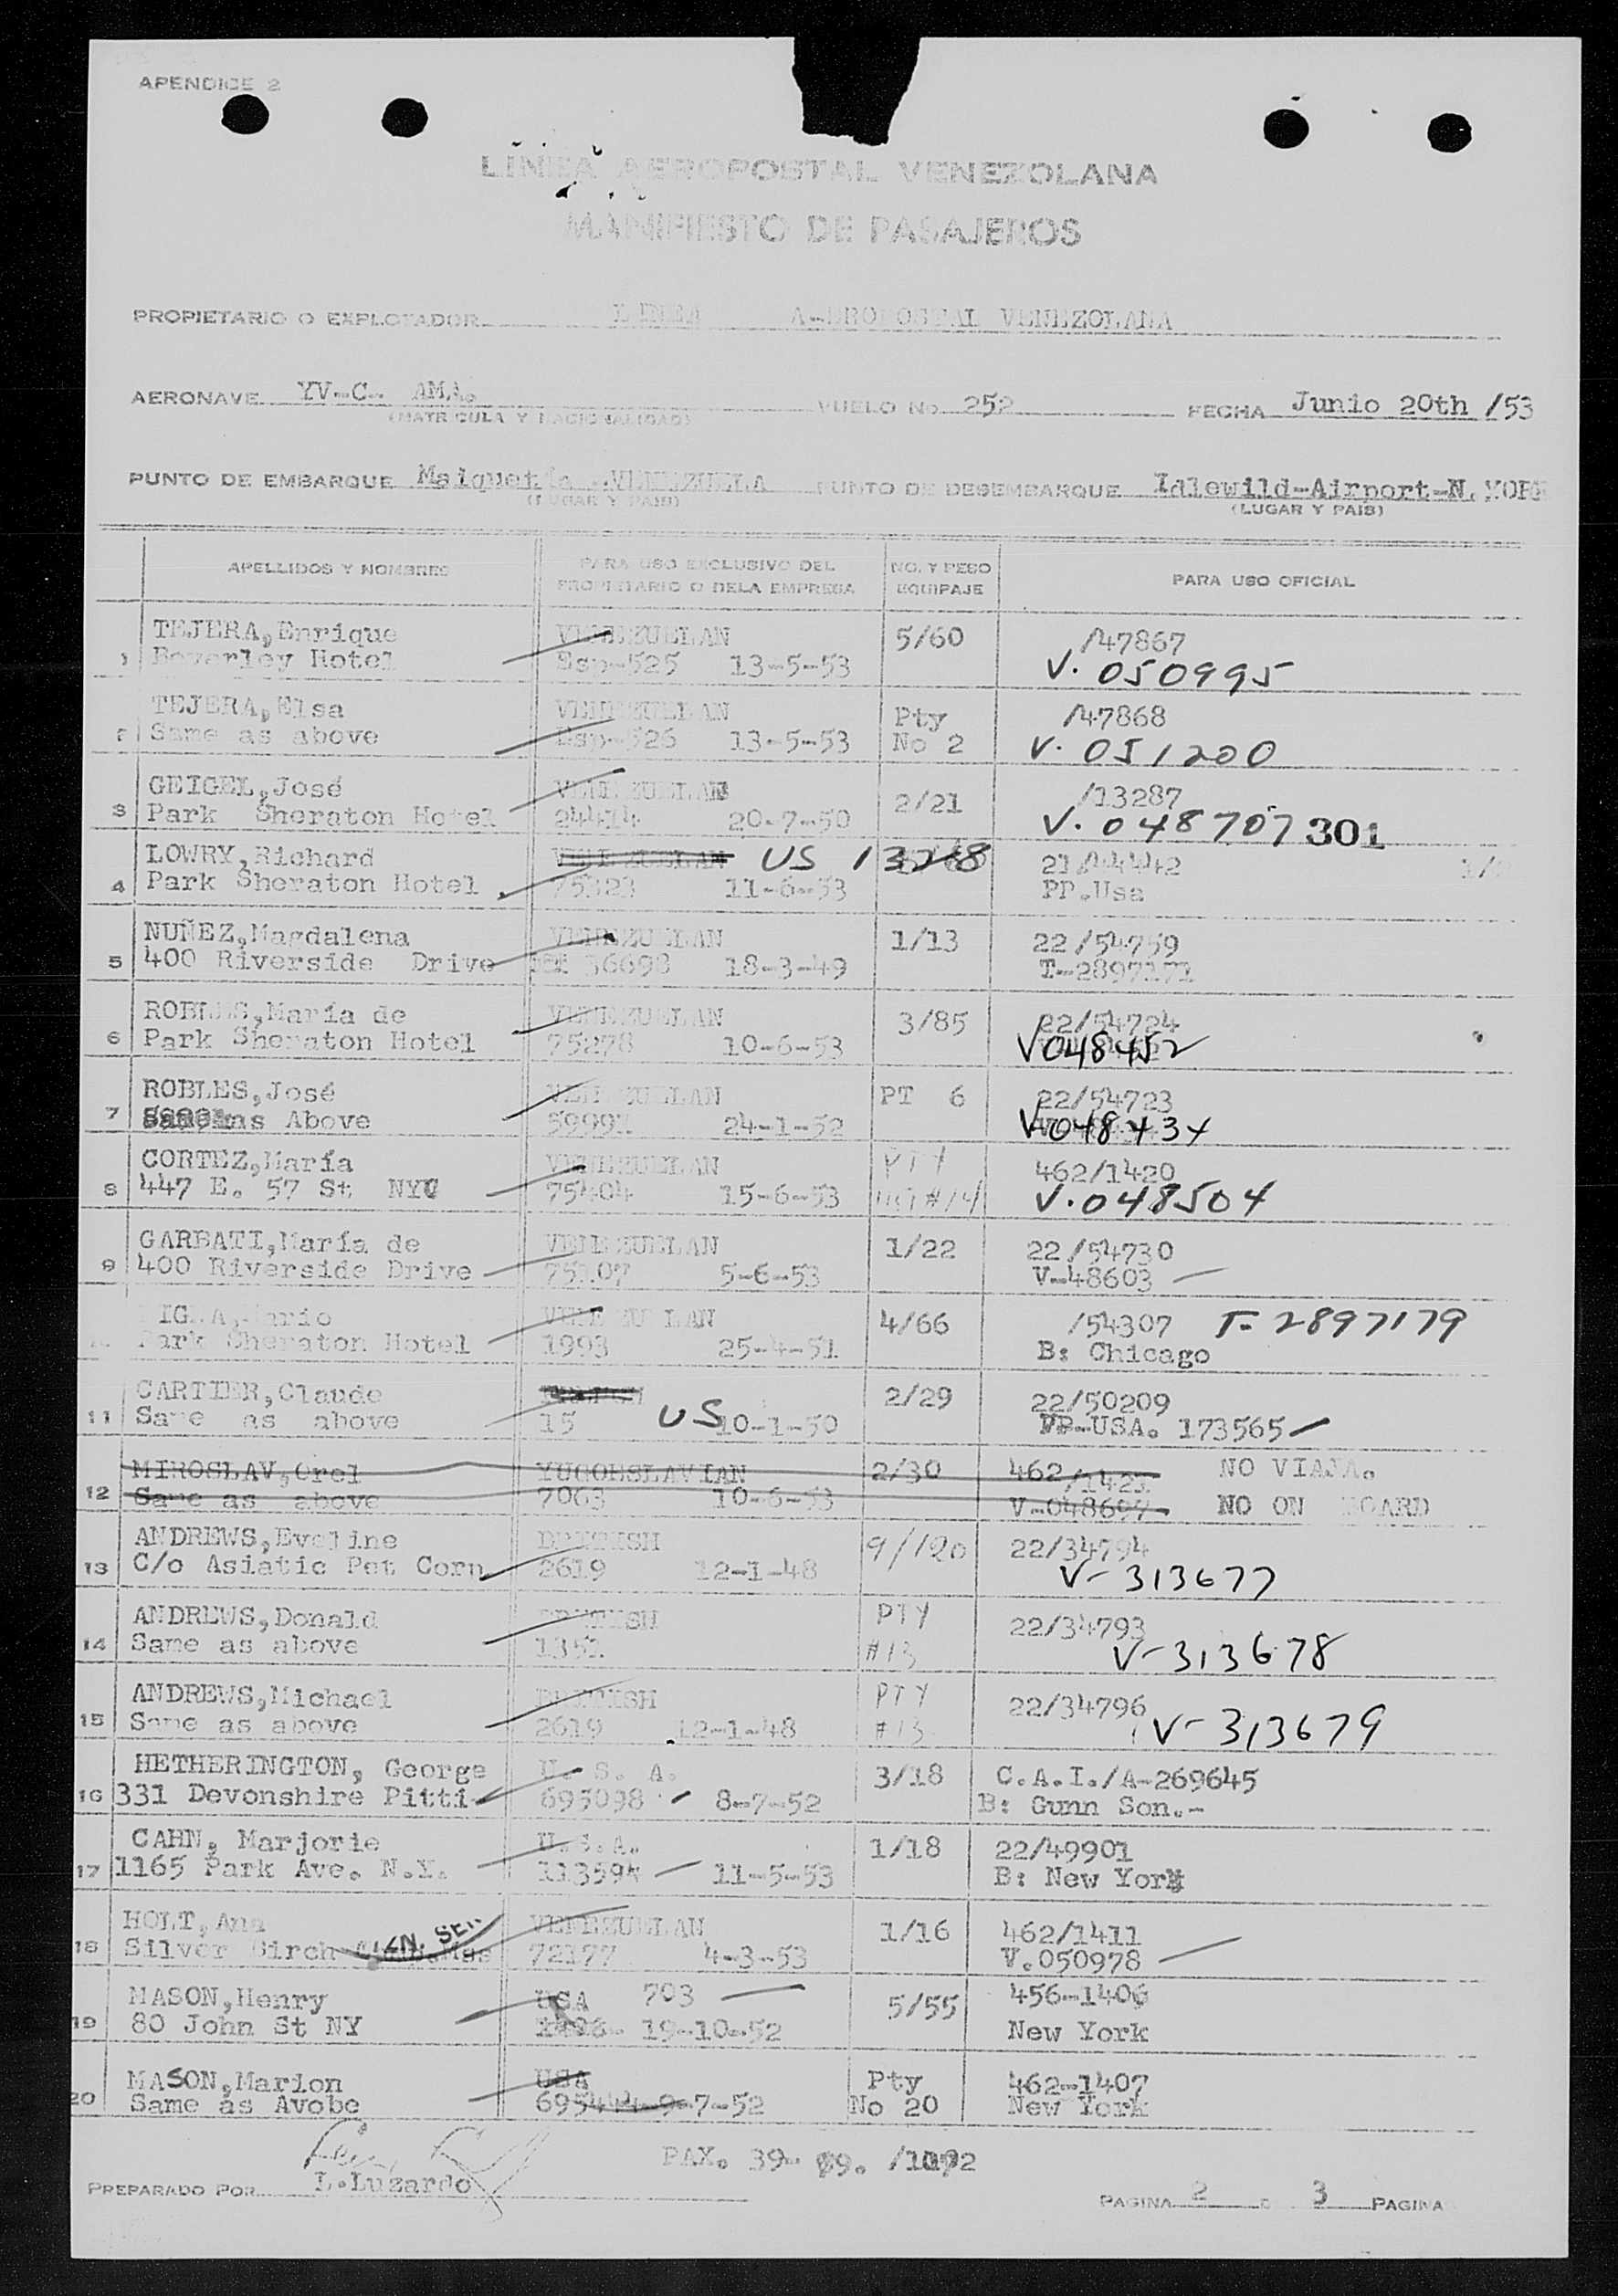 APENDICE 2
LINEA AEROPOSTAL VENEZOLANA
MANIFIESTO DE PASAJEROS
PROPIETARIO O EXPLOTADOR LINEA AEROPOSTAL VENEZOLANA
AERONAVE YV-C- AMA. VUELO No 252 FECHA Junio 20th /53
(MATRICULA Y NACIONALIDAD)
PUNTO DE EMBARQUE Maiquetia -VENEZUELA PUNTO DE DESEMBARQUE Idlewild-Airport-N.YORK
(LUGAR Y PAIS) (LUGAR Y PAIS)
APELLIDOS Y NOMBRES PARA USO EXCLUSIVO DEL PROPIETARIO O DE LA EMPRESA NO. Y PESO EQUIPAJE PARA USO OFICIAL
TEJERA,Enrique VENEZUELAN 5/60 /47867
Beverley Hotel Esp-525 13-5-53 V. 050995
TEJERA,Elsa VENEZUELAN Pty /47868
Same as above Esp-526 13-5-53 No 2 V. 051200
GEIGEL,José VENEZUELAN 2/21 /13287
3 Park Sheraton Hotel 20-7-50 V. 048707 301
LOWRY,Richard VENEZUELAN US 13268
4 Park Sheraton Hotel 11-6-53 PP.Usa
NUÑEZ,Magdalena VENEZUELAN 1/13 22/54759
5 400 Riverside Drive 36698 18-3-49 T-2897171
ROBLES,María de VENEZUELAN 3/85 22/54724
6 Park Sheraton Hotel 75278 10-6-53 V048452
ROBLES,José VENEZUELAN PT 6 22/54723
7 Same as Above 24-1-52 V048434
CORTEZ,María VENEZUELAN PTY 462/1420
8 447 E. 57 St NYC 75404 15-6-53 #14 V.048504
GARBATI,María de VENEZUELAN 1/22 22/54730
9 400 Riverside Drive 5-6-53 V-48603
VENEZUELAN 4/66 /54307 T-2897179
Park Sheraton Hotel 1993 25-4-51 B: Chicago
CARTIER,Claude 2/29 22/50209
11 Same as above 15 US 10-1-50 PP-USA. 173565
MIROSLAV,Orel YUGOESLAVIAN 2/30 462/142 NO VIAJA.
12 Same as above 7063 10-6-53 V-048697 NO ON BOARD
ANDREWS,Eveline BRITISH 9/120 22/34794
13 C/o Asiatic Pet Corp. 2619 12-1-48 V-313677
ANDREWS,Donald BRITISH PTY 22/34793
14 Same as above 1351 #13 V-313678
ANDREWS,Michael BRITISH PTY 22/34796
15 Same as above 2619 12-1-48 #13 V-313679
HETHERINGTON, George U. S. A. 3/18 C.A.I./A-269645
16 331 Devonshire Pitti 695098 8-7-52 B: Gunn Son.-
CAHN, Marjorie U.S.A. 1/18 22/49901
17 1165 Park Ave. N.Y. 113594 11-5-53 B: New York
HOLT,Ana VENEZUELAN 1/16 462/1411
18 Silver Birch 72177 4-3-53 V.050978
MASON,Henry USA 703 5/55 456-1406
19 80 John St NY 19-10-52 New York
MASON,Marion USA Pty 462-1407
20 Same as Avobe 695444-9-7-52 No 20 New York
PAX. 39-
PREPARADO POR L.Luzardo
PAGINA 2 D 3 PAGINA